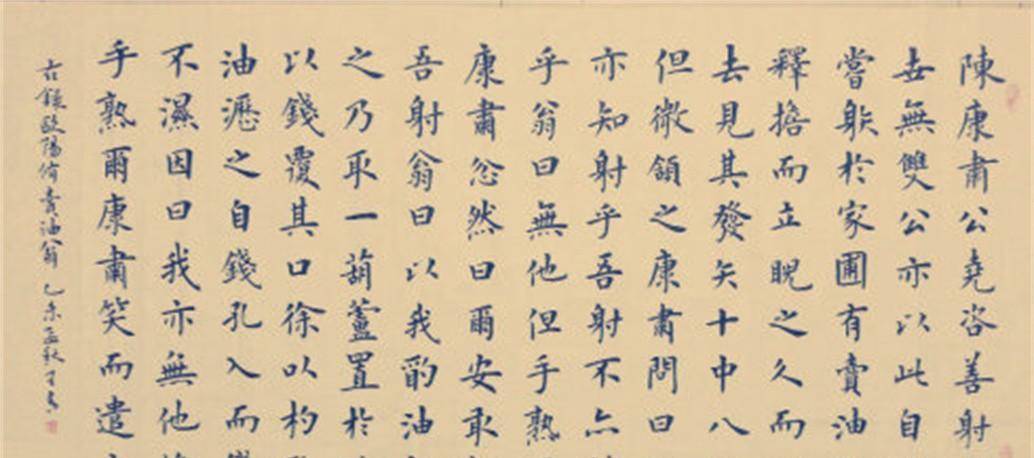 陳康肅公堯咨善射
世無雙公亦以此自
嘗䠶於家圃有賣油
釋擔而立睨之久而
去見其發矢十中八
但微頷之康肅問曰
亦知射乎吾射不亦
乎翁曰無他但手熟
康肅忿然曰爾安敢
吾射翁曰以我酌油
之乃取一葫蘆置於
以錢覆其口徐以杓
油瀝之自錢孔入而
不濕因曰我亦無他
手熟爾康肅笑而遣
右錄歐陽脩賣油翁 乙未孟秋